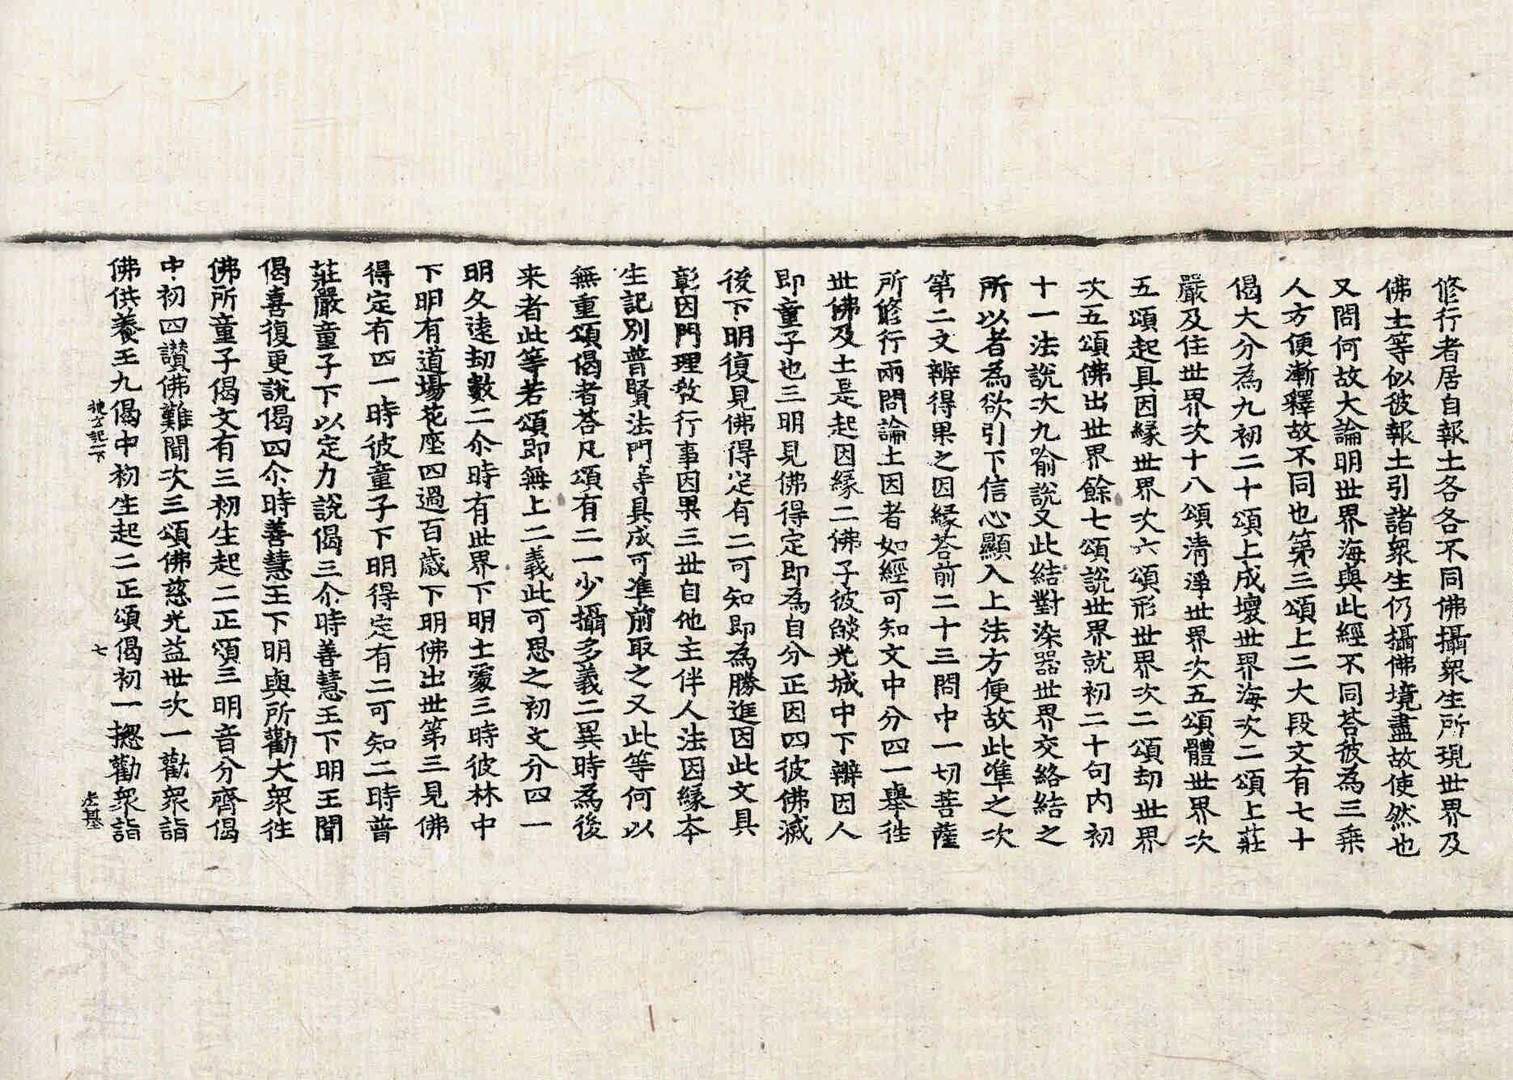 修行者居自報土各各不同佛攝衆生所現世界及
佛土等似彼報土引諸衆生仍攝佛境盡故使然也
又問何故大論明世界海與此經不同荅彼為三乗
人方便漸釋故不同也第三頌上二大段文有七十
偈大分為九初二十頌上成壞世界海次二頌上莊
嚴及住世界次十八頌清淨世界次五頌體世界次
五頌起具因緣世界次六頌形世界次二頌劫世界
次五頌佛出世界餘七頌說世界就初二十句内初
十一法說次九喻說又此結對染器世界交絡結之
所以者為欲引下信心顯入上法方便故此准之次
第二文辨得果之因緣荅前二十三問中一切菩薩
所修行兩問論土因者如經可知文中分四一舉往
世佛及土是起因緣二佛子彼燄光城中下辨因人
即童子也三明見佛得定即為自分正因四彼佛滅
後下明復見佛得定有二可知即為勝進因此文具
彰因門理教行事因果三世自他主伴人法因緣本
生記別普賢法門等具成可准前取之又此等何以
無重頌偈者荅凡頌有二一少攝多義二異時為後
来者此等若頌即無上二義此可思之初文分四一
明久遠劫數二尒時有世界下明土處三時彼林中
下明有道場花座四過百歲下明佛出世第三見佛
得定有四一時彼童子下明得定有二可知二時普
莊嚴童子下以定力說偈三尒時善慧王下明王聞
偈喜復更說偈四尒時善慧王下明與所勸大衆往
佛所童子偈文有三初生起二正頌三明音分齊偈
中初四讃佛難聞次三頌佛慈光益世次一勸衆詣
佛供養王九偈中初生起二正頌偈初一揔勸衆詣
七